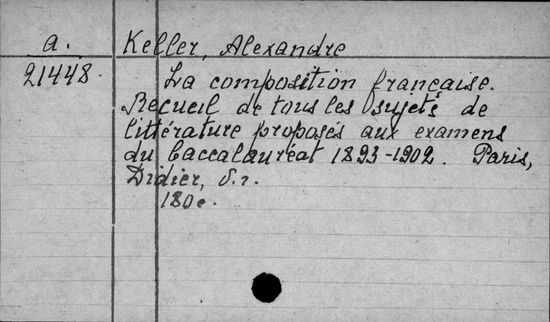 a. Keller, Alexandre
21448. La composition française.
Recueil de tous les sujets de
littérature proposés aux examens
du baccalauréat 1893-1902. Paris,
Didier, s.
18